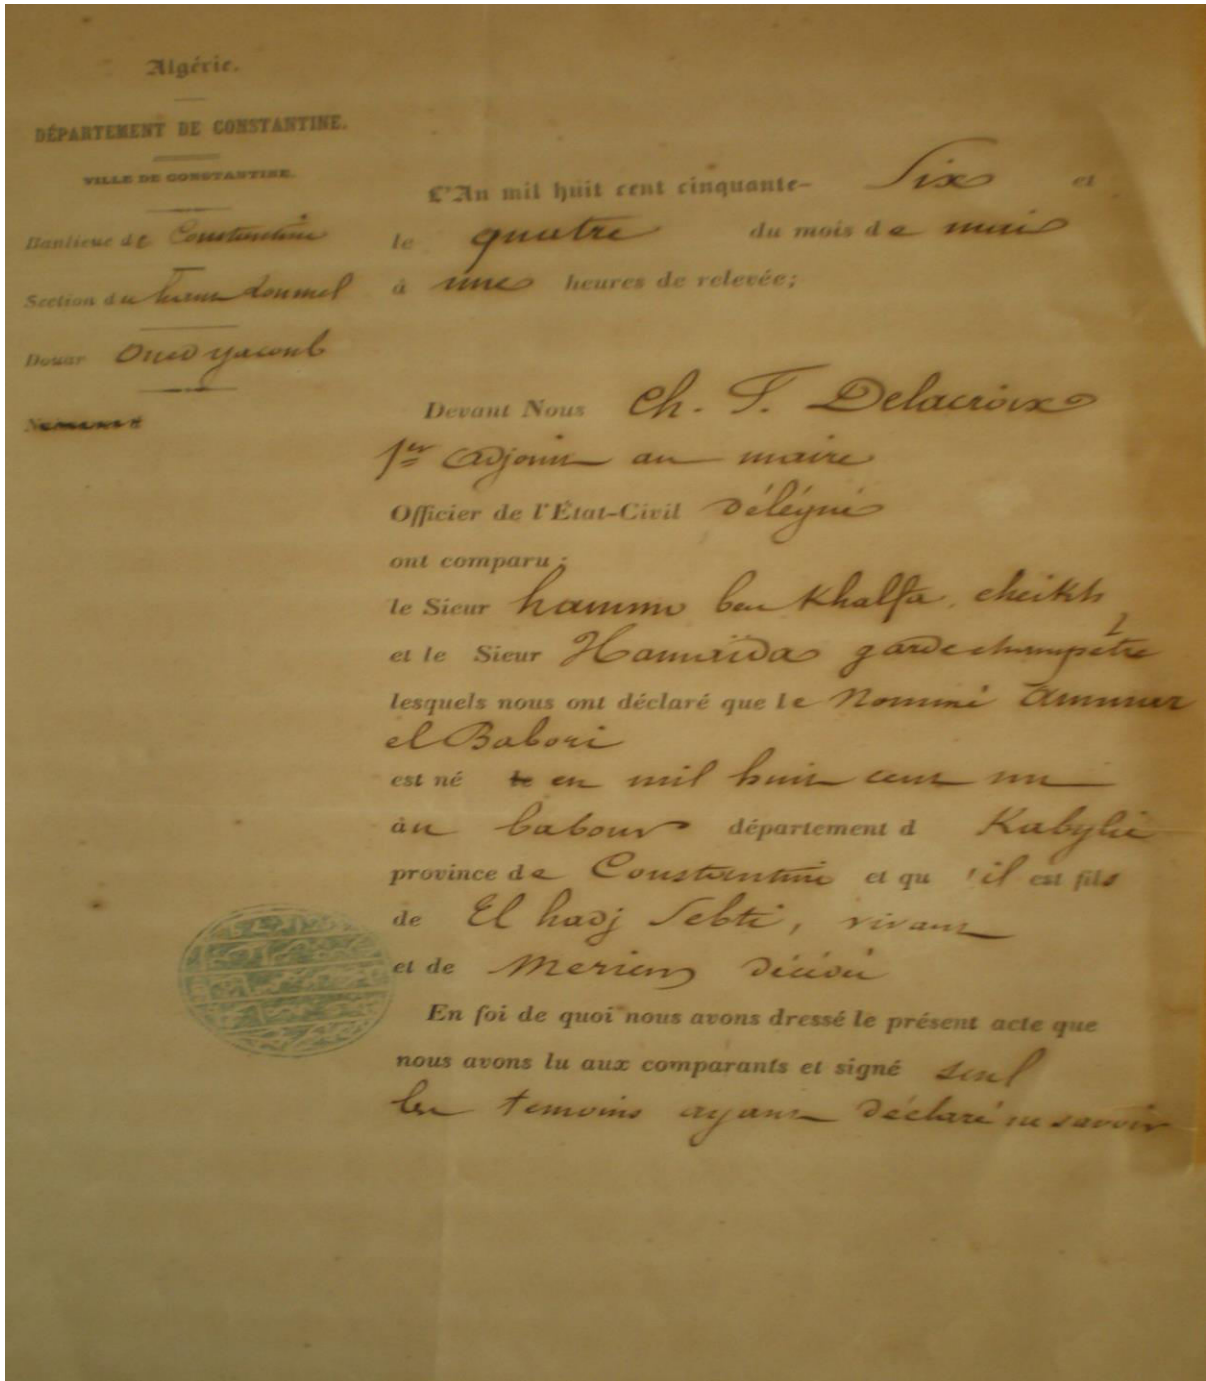 Algérie.
DÉPARTEMENT DE CONSTANTINE.
VILLE DE CONSTANTINE.
Banlieue de Constantine
Section du hameau
Douar Oued yacoub
L'An mil huit cent cinquante- Six et
le quatre du mois de mai
à une heures de relevée;
Devant Nous Ch. F. Delacroix
1er adjoint au maire
Officier de l'État-Civil délégué
ont comparu :
le Sieur hammu ben Khalfa, cheikh
et le Sieur Hamaïda garde champêtre
lesquels nous ont déclaré que le Nommé Ammar
el Babori
est né le en mil huit cent un
au babour département d Kabylie
province de Constantine et qu 'il est fils
de El hadj Sebti, vivant
et de Meriem décédé
En foi de quoi nous avons dressé le présent acte que
nous avons lu aux comparants et signé seul
les temoins ayant déclaré ne savoir